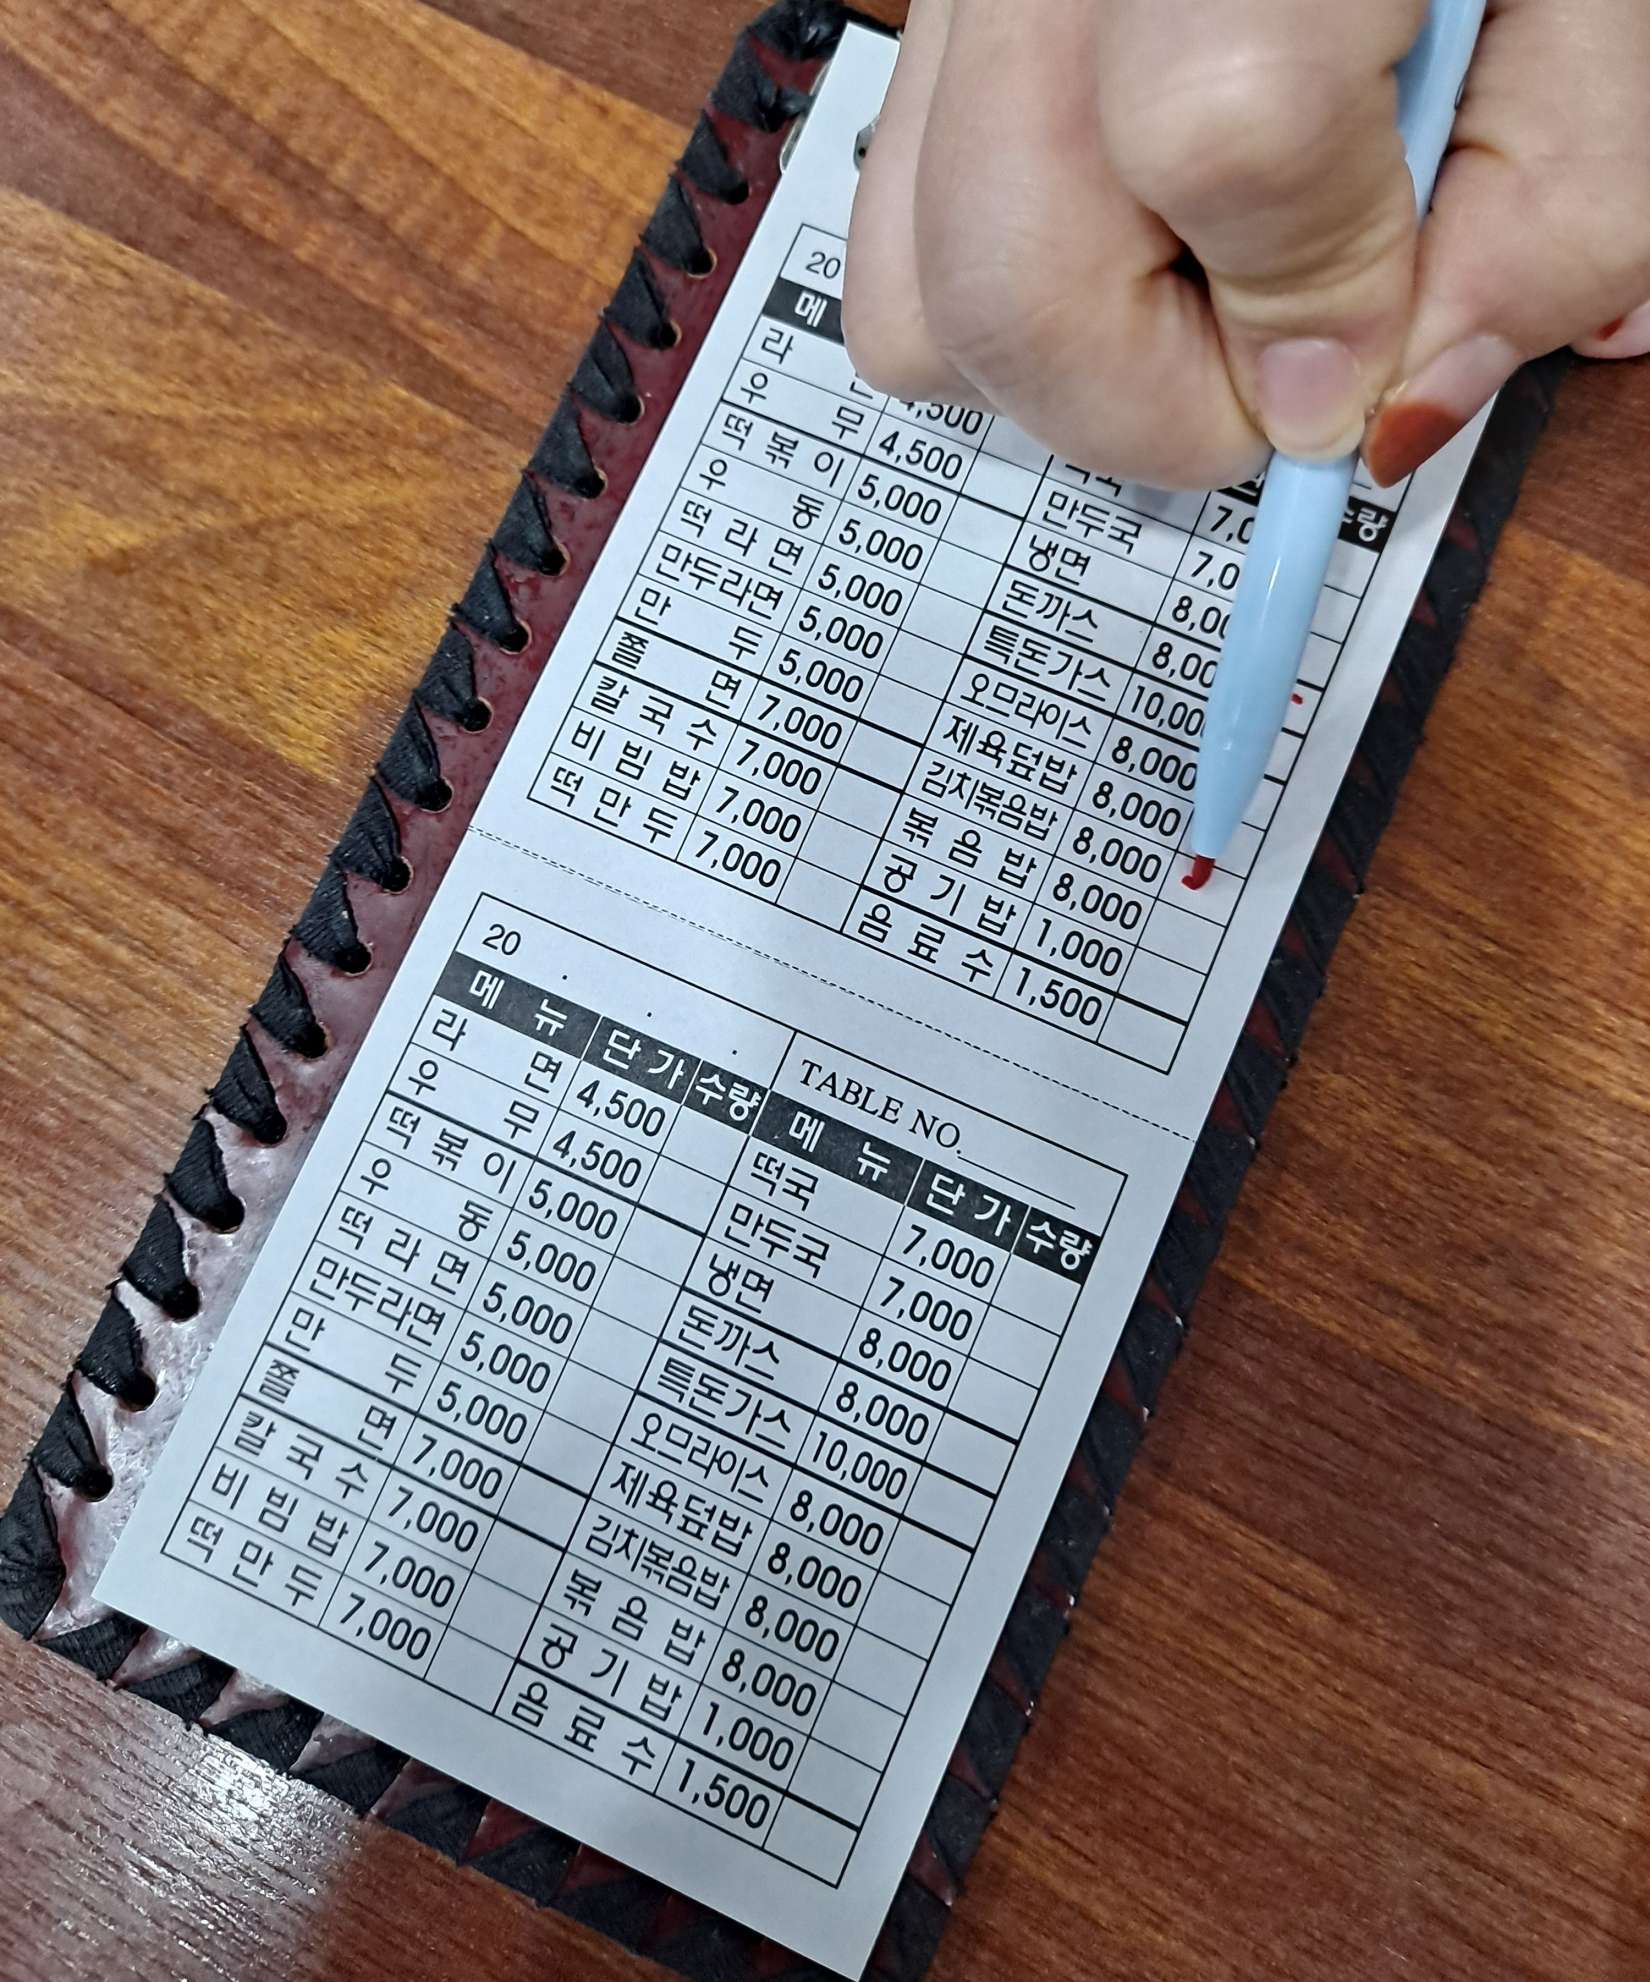 20
메 수량
라 4,500 떡국
우 무 4,500 만두국
떡 볶 이 5,000 냉면
우 동 5,000 돈까스
떡 라 면 5,000 특돈가스
만두라면 5,000 오므라이스 8,000
만 두 5,000 제육덮밥 8,000
쫄 면 7,000 김치볶음밥 8,000
칼 국 수 7,000 볶 음 밥 8,000
비 빔 밥 7,000 공 기 밥 1,000
떡 만 두 7,000 음 료 수 1,500
20 . . . TABLE NO.
메 뉴 단 가 수량 메 뉴 단 가 수량
라 면 4,500 떡국 7,000
우 무 4,500 만두국 7,000
떡 볶 이 5,000 냉면 8,000
우 동 5,000 돈까스 8,000
떡 라 면 5,000 특돈가스 10,000
만두라면 5,000 오므라이스 8,000
만 두 5,000 제육덮밥 8,000
쫄 면 7,000 김치볶음밥 8,000
칼 국 수 7,000 볶 음 밥 8,000
비 빔 밥 7,000 공 기 밥 1,000
떡 만 두 7,000 음 료 수 1,500